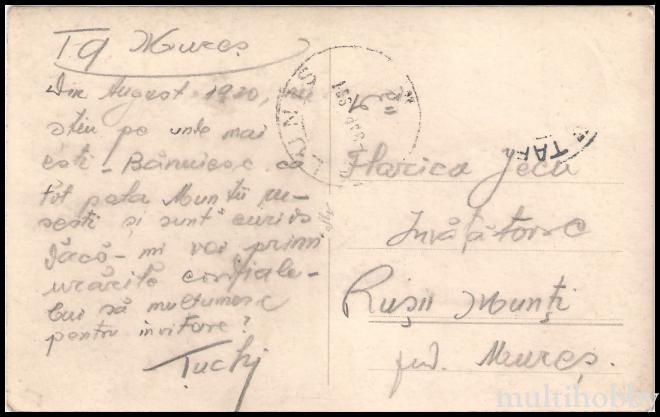 Tg Mureș
Din August 1920, nu
știu pe unde mai
ești - Bănuiesc că
tot pela Munții ru-
sești și sunt curios
Dacă-mi voi primi
urările cordiale-
Cui să mulțumesc
pentru invitare?
Tuchi
Florica Jecu
Învățătoare
Rușii Munți
jud. Mureș.
multihobby